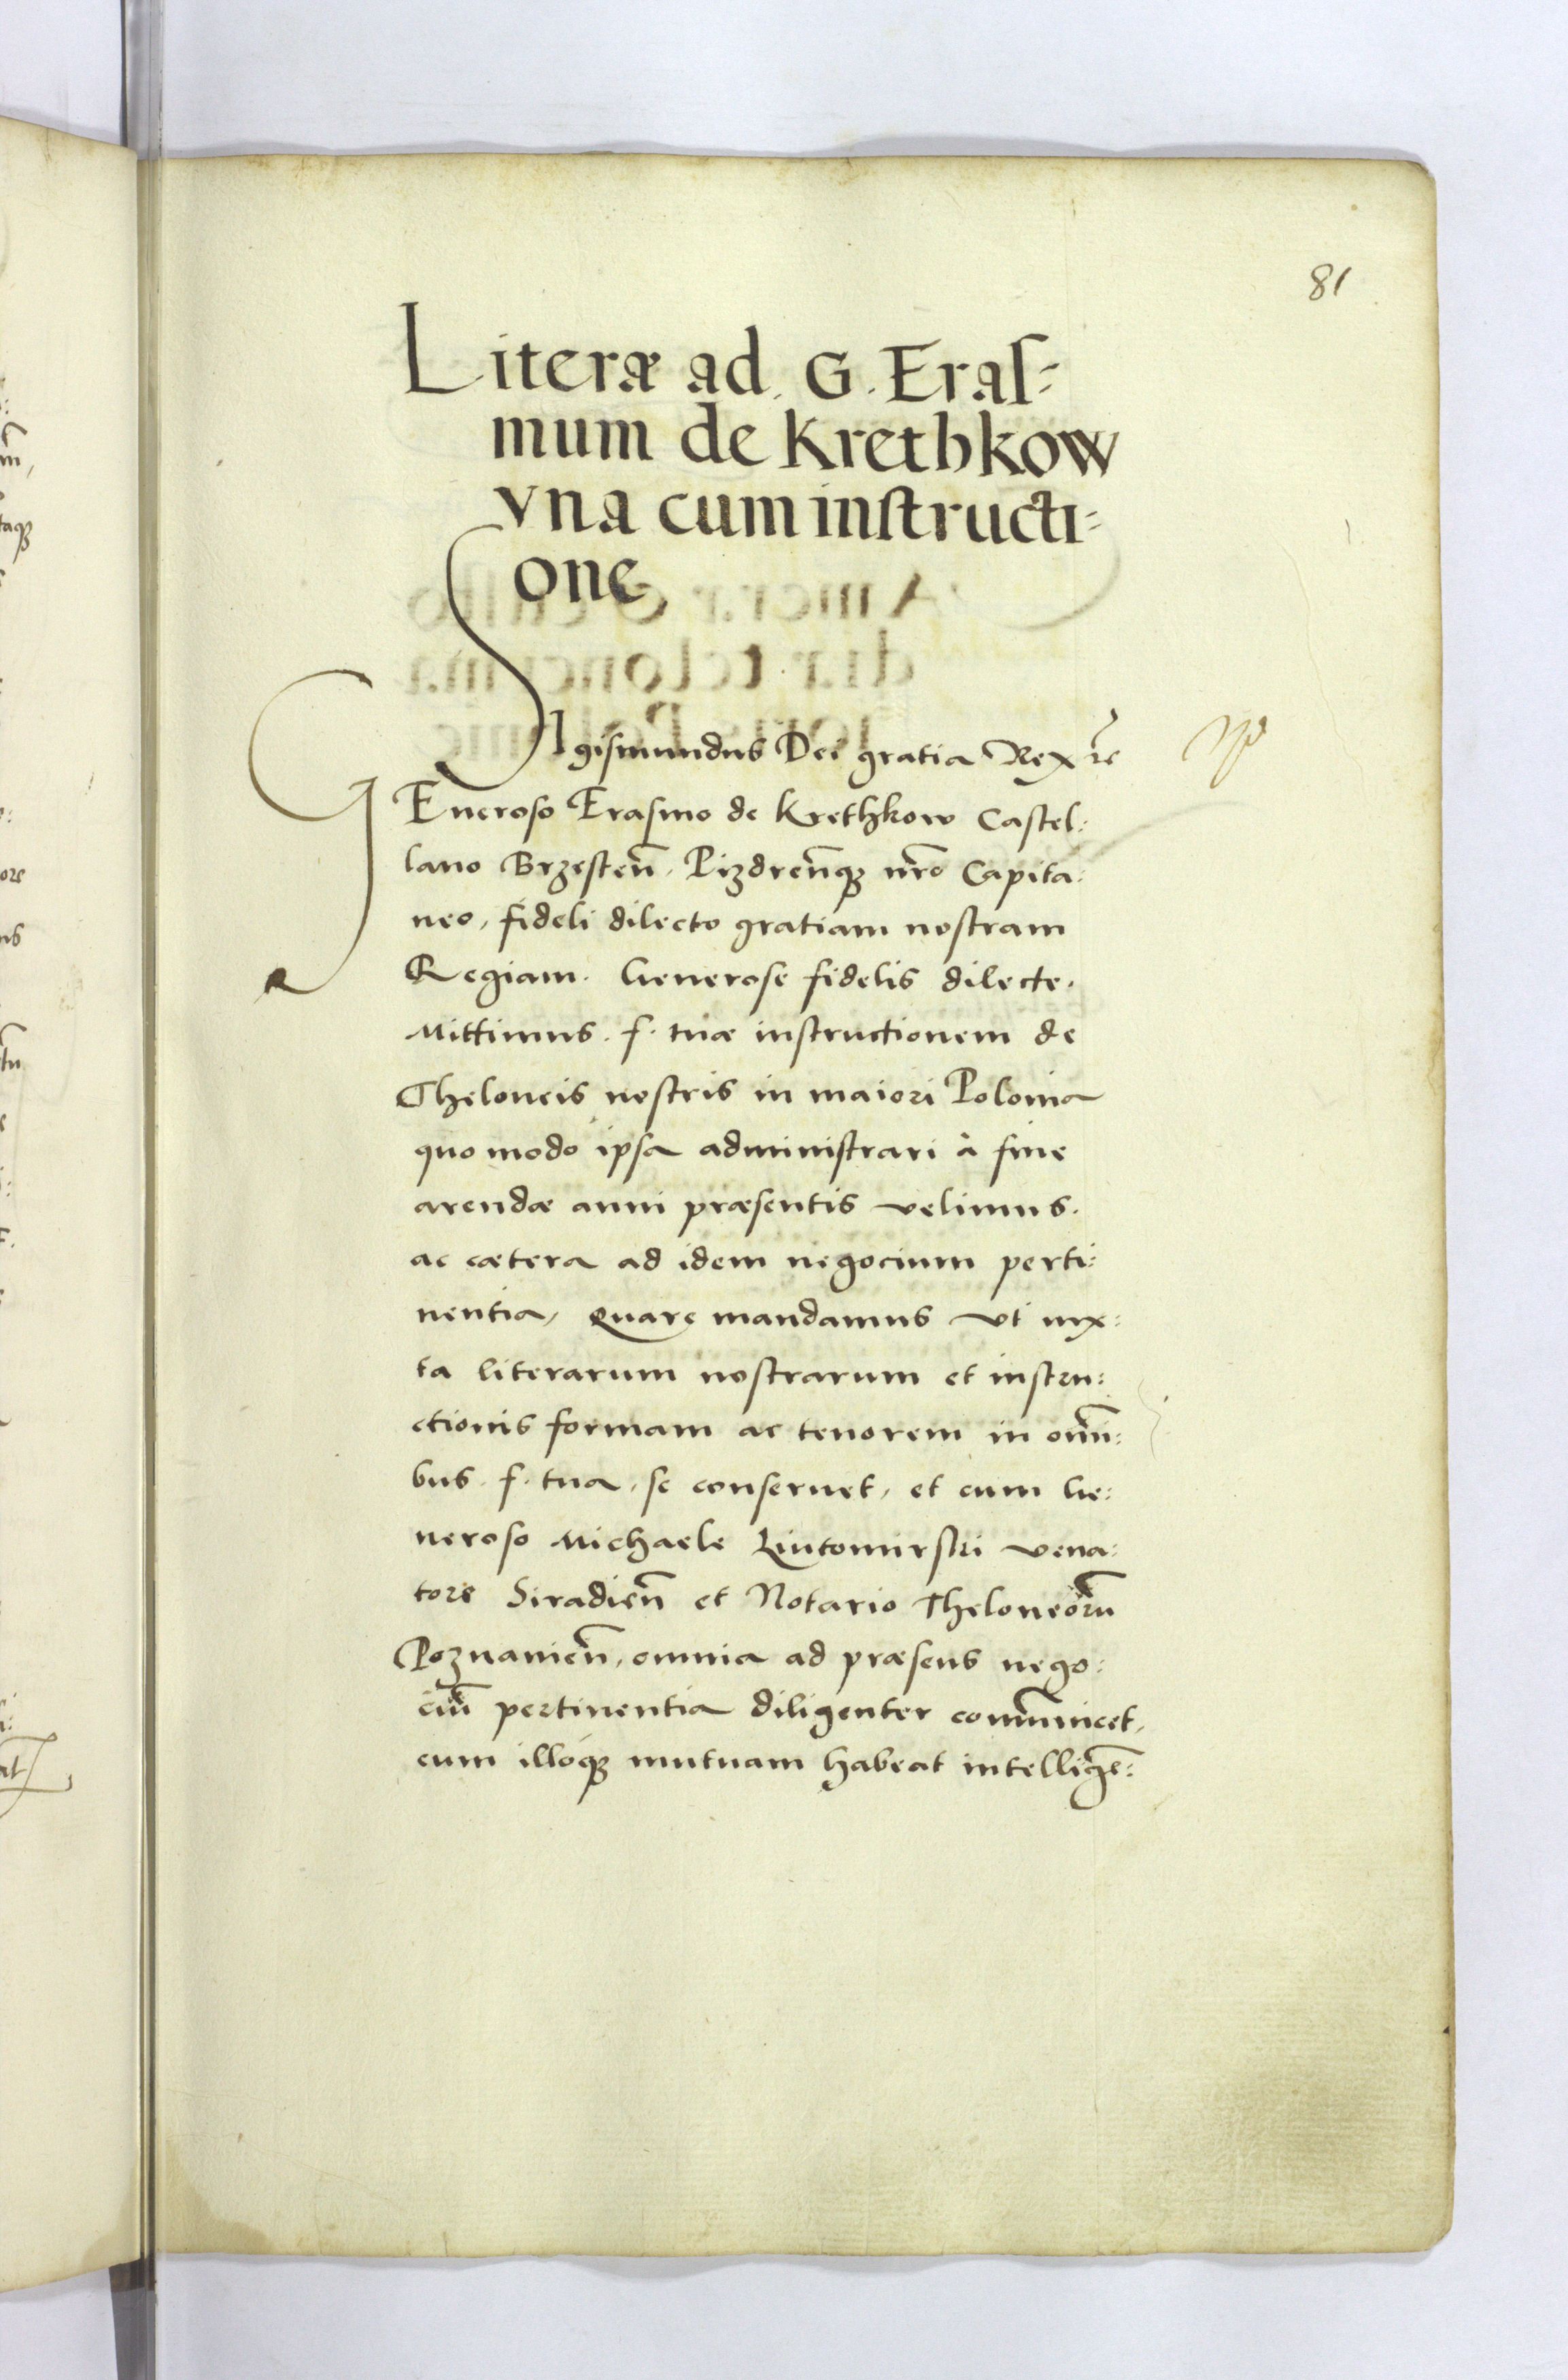 81
Literæ ad. G. Eras=
mum de Krethkow
vna cum instructi=
one
SIgismundus Dei gratia Rex rc̃
GEneroso Erasmo de Krethkow Castel:
lano Brzesteñ. Pizdreñq3 nr̃o Capita:
neo, fideli dilecto gratiam nostram
Regiam. Generose fidelis dilecte.
Mittimus. f. tuæ instructionem de
Theloneis nostris in maiori Polonia
quo modo ipsa administrari à fine
arendæ anni præsentis velimus.
ac cætera ad idem negocium perti:
nentia, Quare mandamus vt iux:
ta literarum nostrarum et instru:
ctionis formam ac tenorem in om̃i:
bus. f. tua, se conseruet, et cum Ge:
neroso Michaele Liutomirski vena:
tore Siradieñ et Notario Theloneorũ
Poznanieñ, omnia ad præsens nego:
ciũ pertinentia diligenter com̃unicet,
cum illoq3 mutuam habeat intelligẽ: